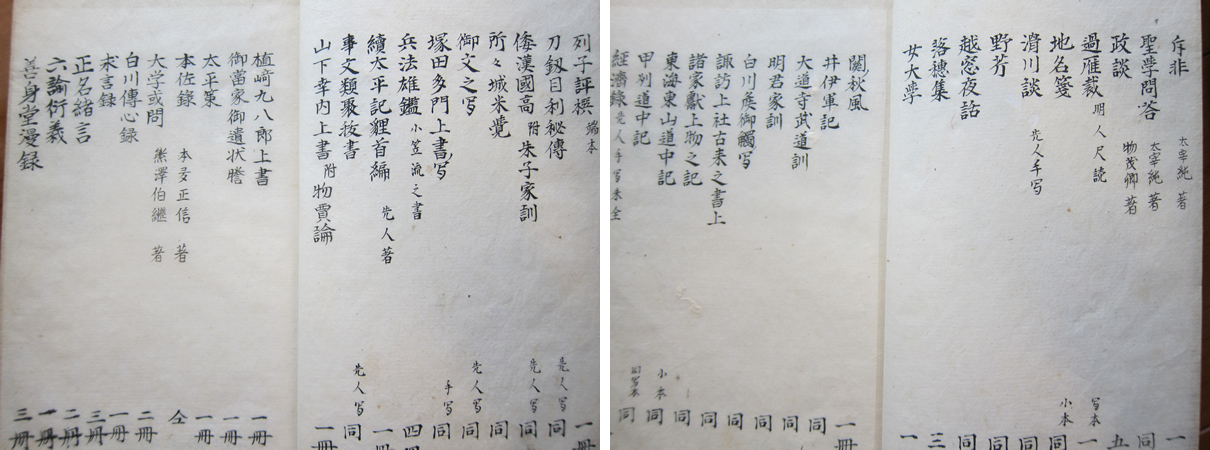 列子評撰 端本 一冊
刀釼目利秘傳 先人写 同
倭漢國高 附 朱子家訓 先人写 同
所々城米覚 同
御文之写 先人写 同
塚田多門上書写 手写 同
兵法雄鑑 小笠流之書 四
續太平記貍首編 先人著 一冊
事文類聚抜書 先人写 同
山下幸内上書 附 物賈論 一冊
植﨑九八郎上書 一冊
御當家御遺状謄 一冊
太平策 一冊
本佐錄 本多正信 著 仝
大学或問 熊澤伯継 著 二冊
白川傳心録 一冊
求言録 三冊
正名緒言 二冊
六諭衍義 一冊
善身堂漫録 三冊
斥非 太宰純 著 一
聖学問答 太宰純 著 同
政談 物茂卿 著 五
過雁裁 明人尺牘 写本 一
地名箋 小本 同
滑川談 先人手写 同
野芥 同
越窓夜話 同
落穂集 三
女大学 一
閑秋風 一冊
井伊軍記 同
大道寺武道訓 同
明君家訓 同
白川矦御觸写 同
諏訪上社古来之書上 同
諸家獻上物之記 同
東海東山道中記 小本 同
甲州道中記 同写本 同
經濟錄 先人手写未全